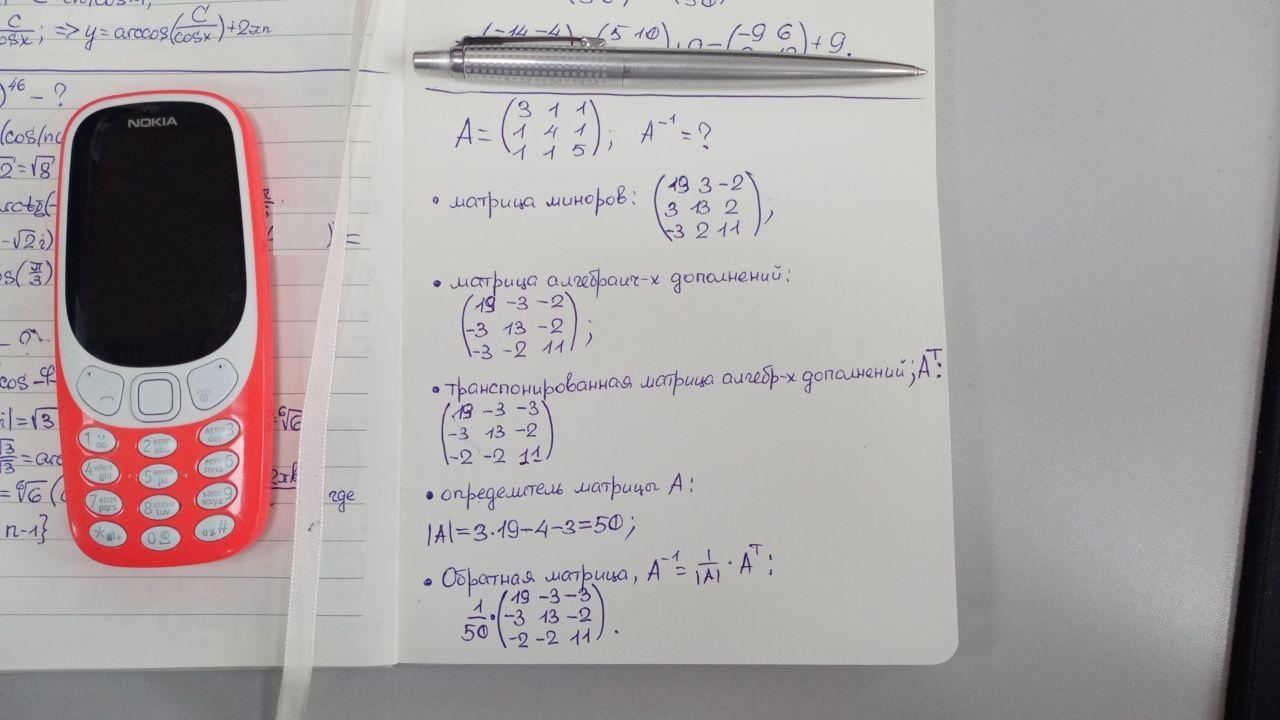 C/cosx; => y = arccos(C/cosx)+2πn
)⁴⁶ - ?
2 = √8
- √2i)
os(π/3)
- ?
|= √3
n-1}
где
NOKIA
1
2 abc
3 def
4 ghi
5 jkl
6 mno
7 pqrs
8 tuv
9 wxyz
*
0
#
(-14 -4) (5 10) (-9 6) + 9.
A = (3 1 1
1 4 1
1 1 5); A⁻¹ = ?
• матрица миноров: (19 3 -2
3 13 2
-3 2 11);
• матрица алгебраич-х дополнений:
(19 -3 -2
-3 13 -2
-3 -2 11);
• транспонированная матрица алгебр-х дополнений; Aᵀ:
(19 -3 -3
-3 13 -2
-2 -2 11)
• определитель матрицы A:
|A| = 3·19-4-3=50;
• Обратная матрица, A⁻¹ = 1/|A| · Aᵀ:
1/50 · (19 -3 -3
-3 13 -2
-2 -2 11).